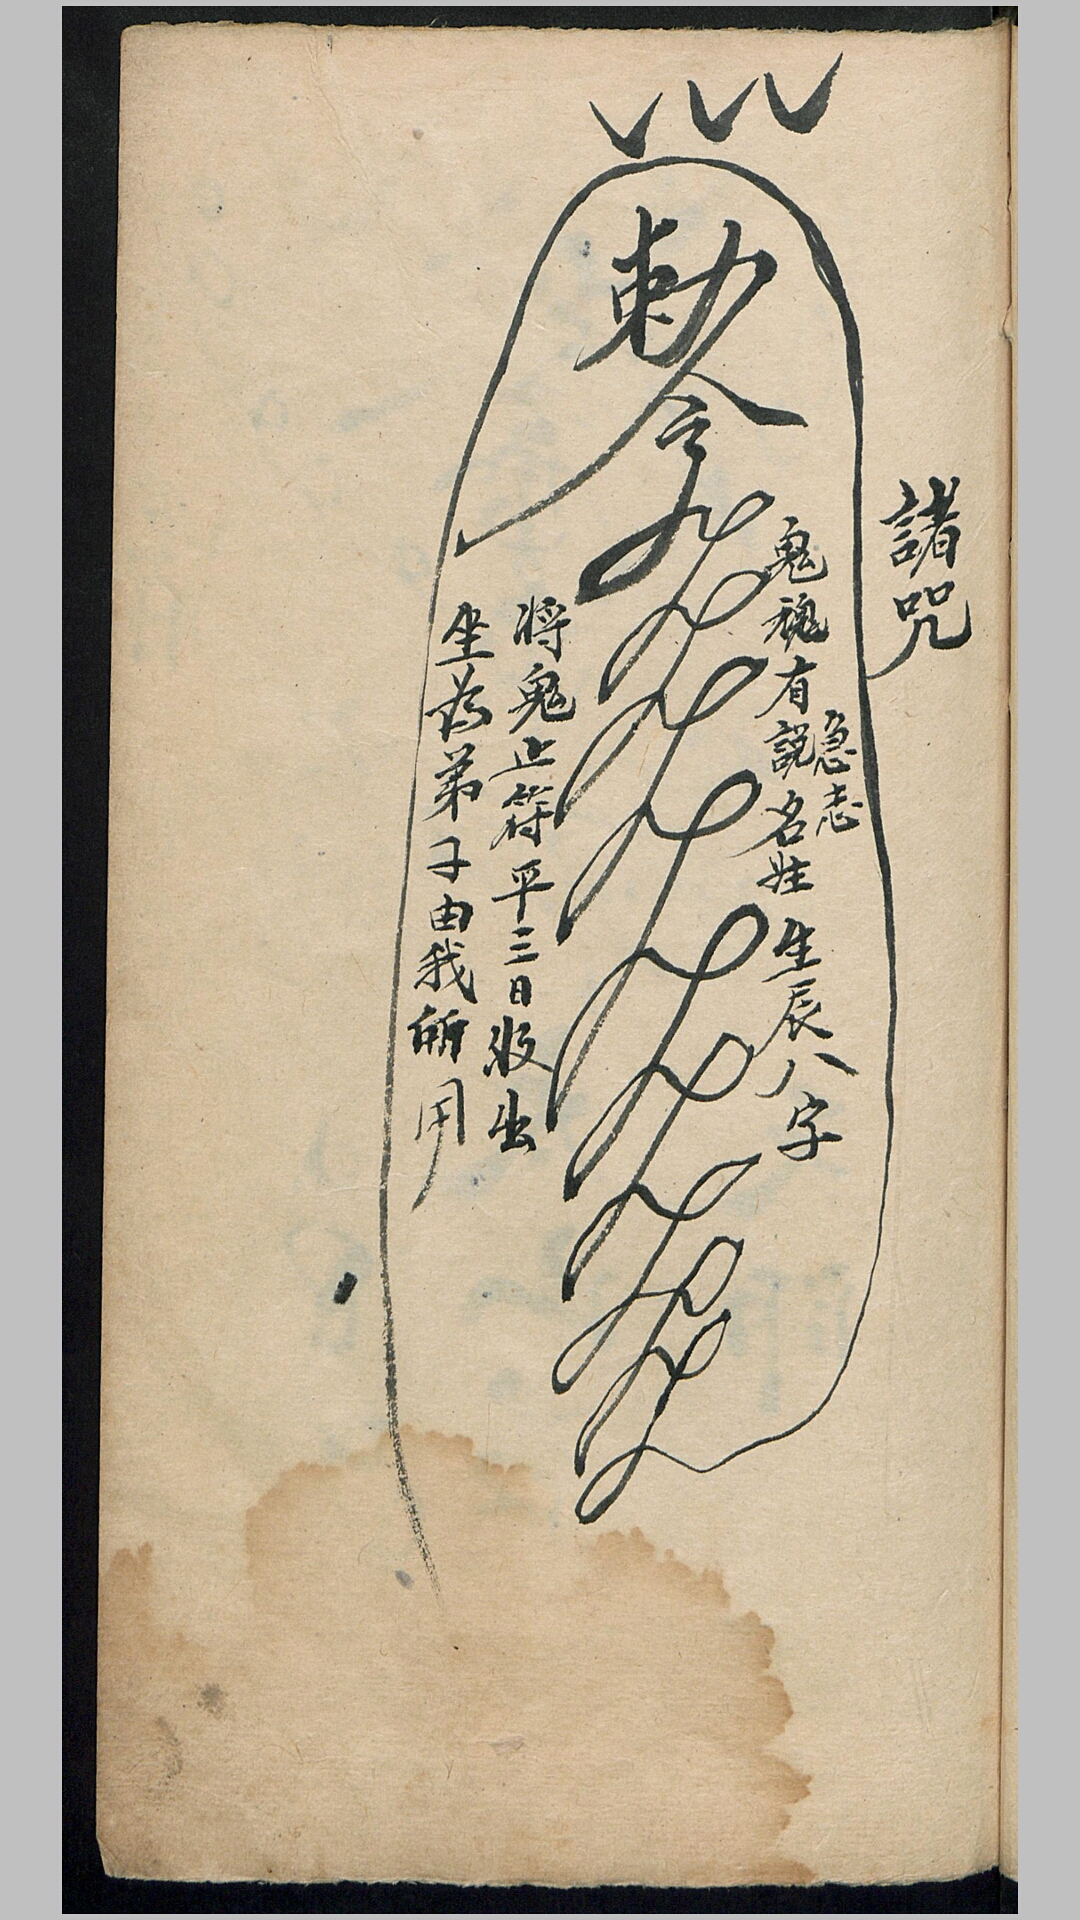 諸咒
勅令
急志
鬼魂有説名姓生辰八字
將鬼止符平三日收出
坐為弟子由我所用